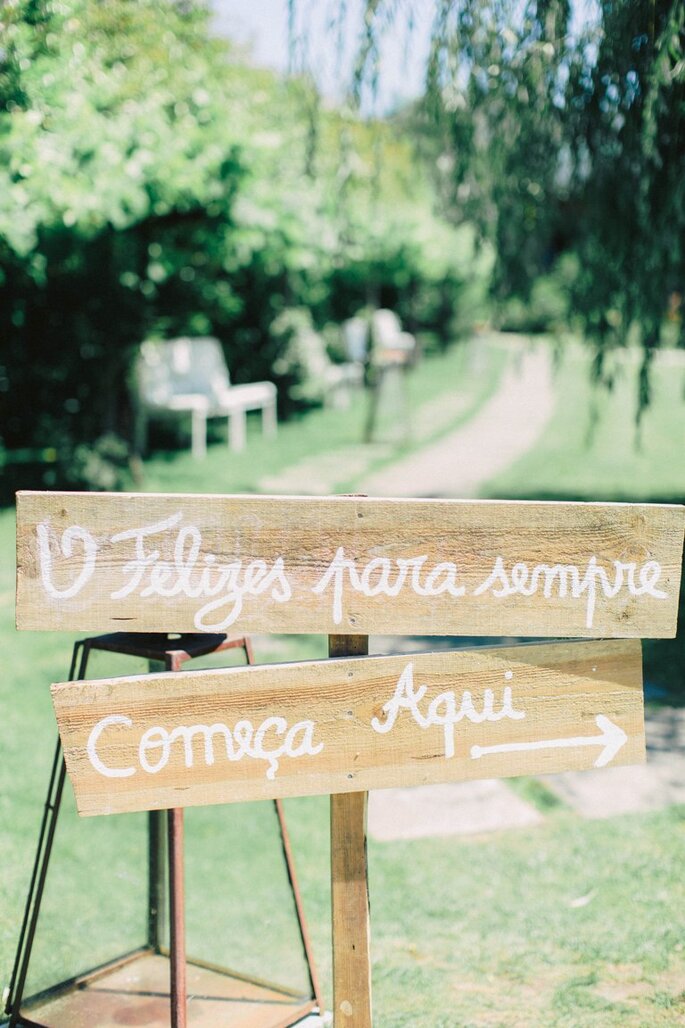 O Felizes para sempre
Começa Aqui →